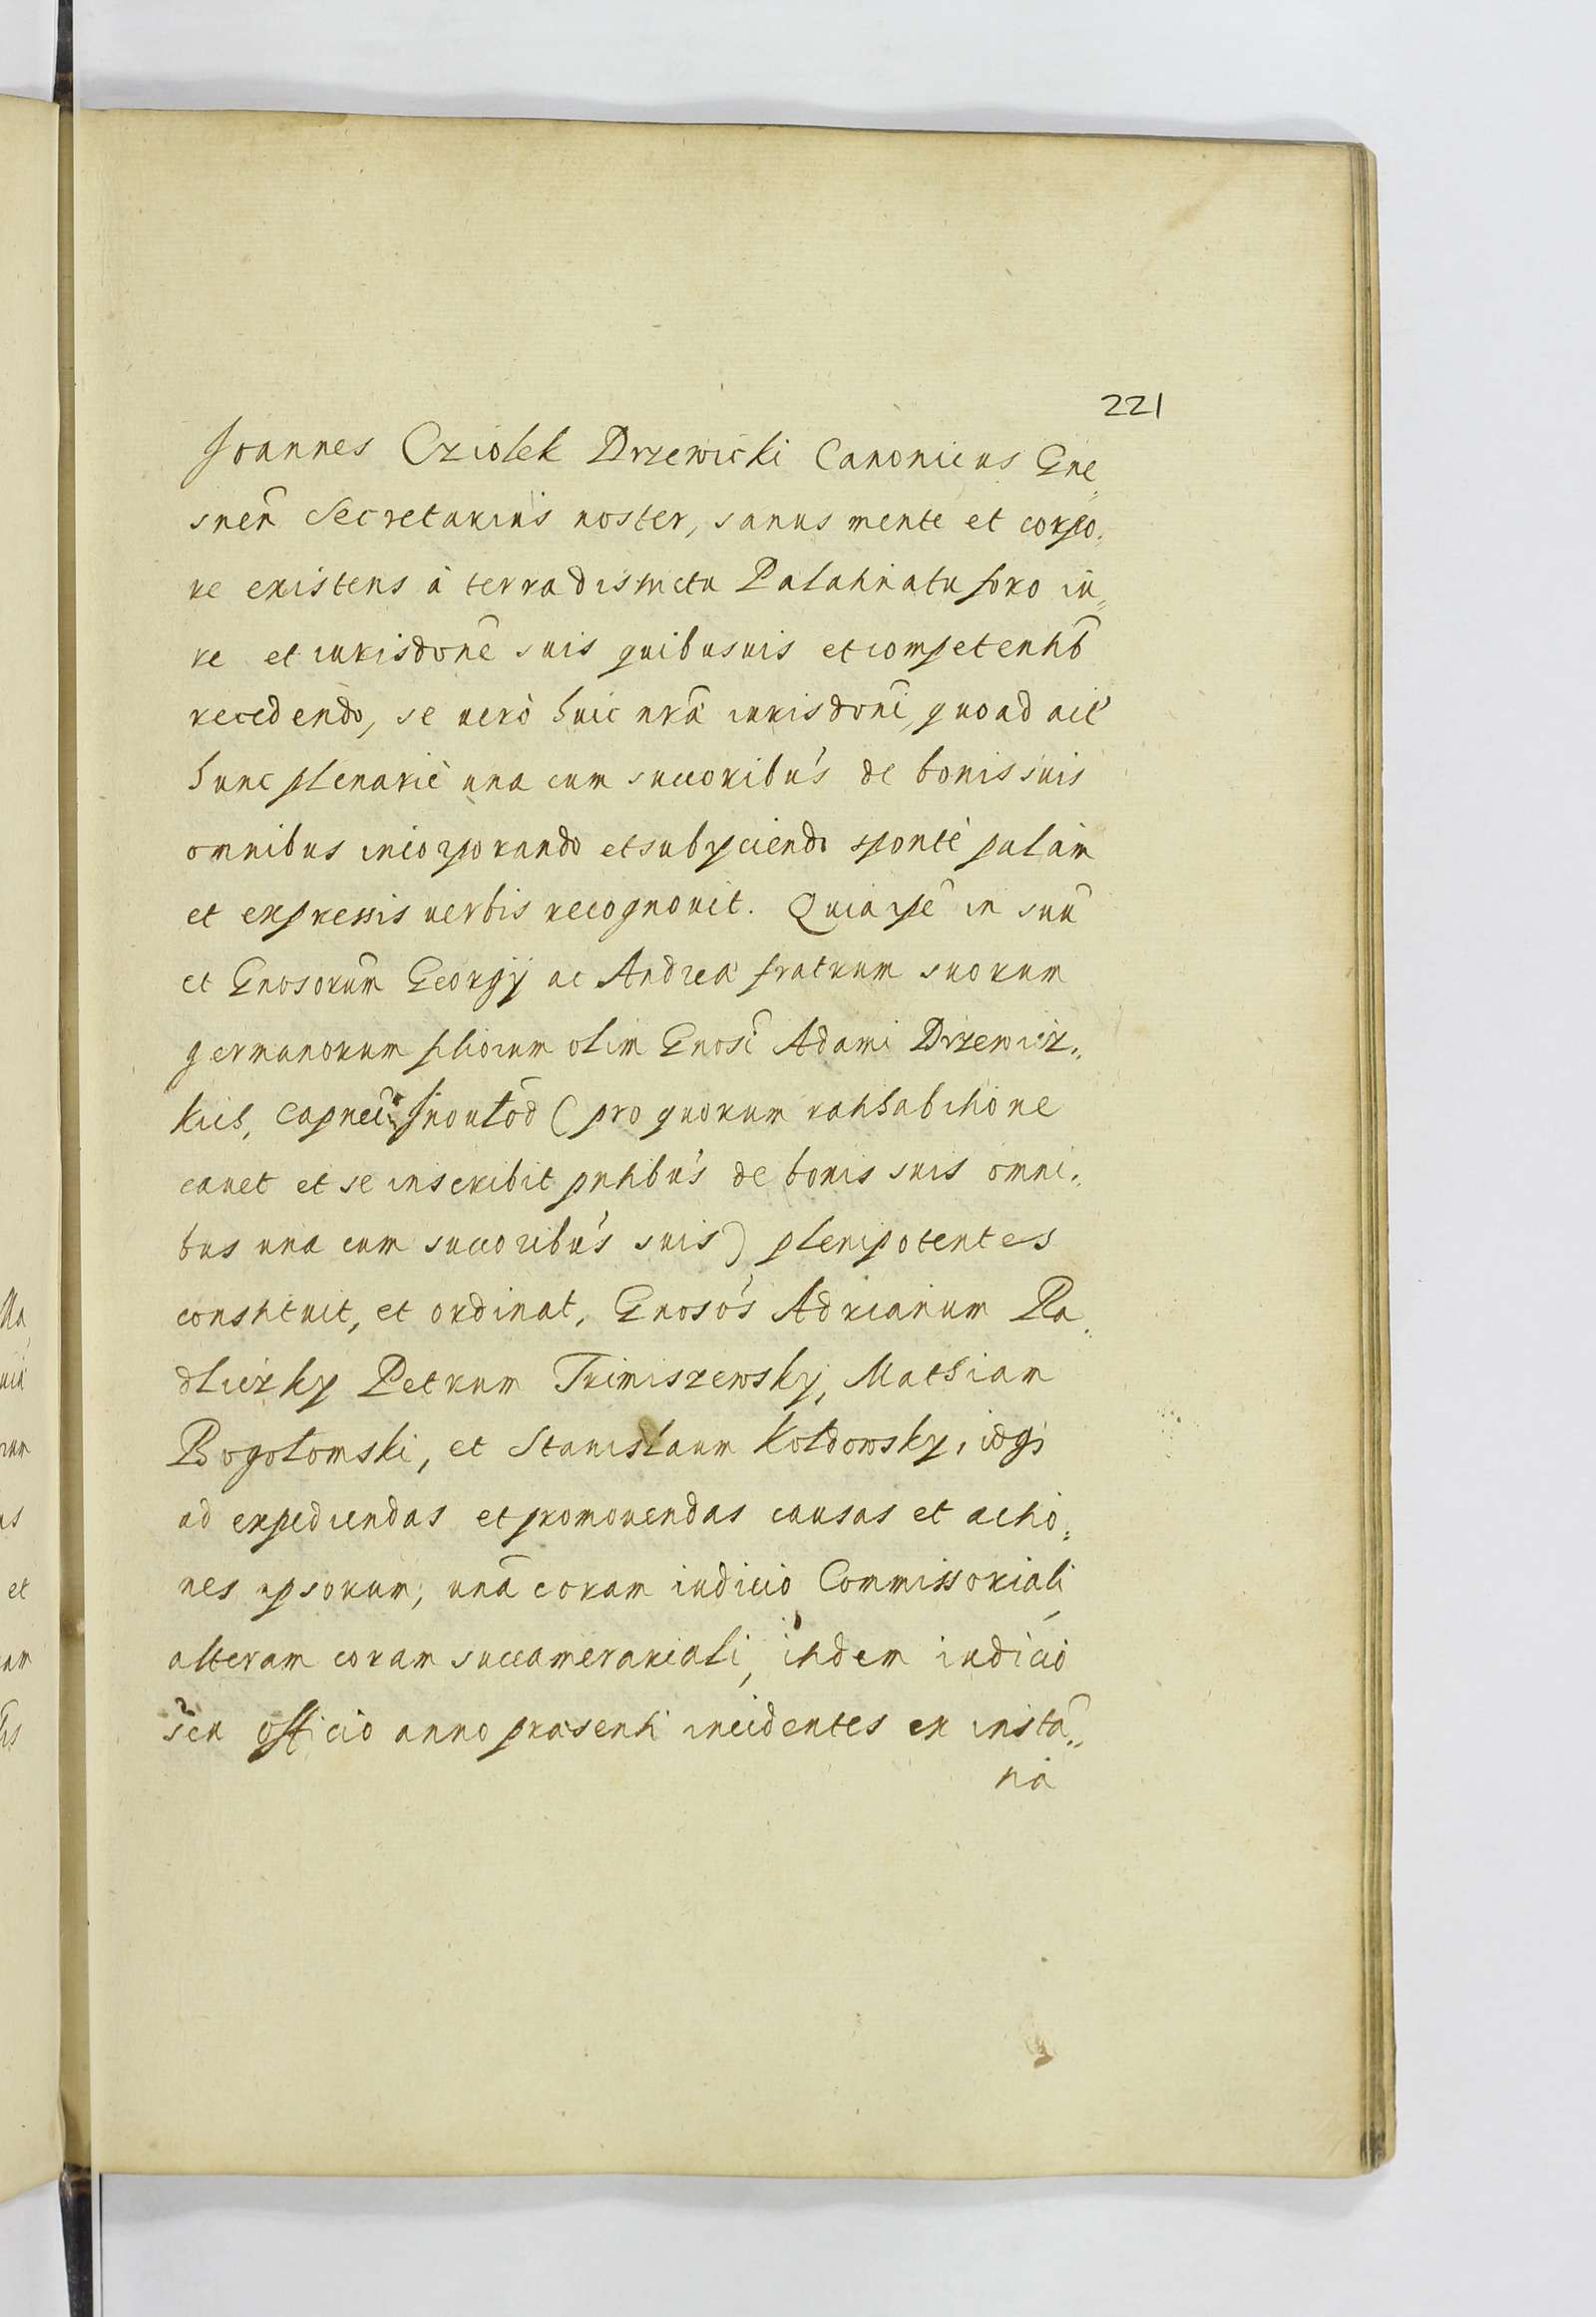 221
Joannes Cziolek Drzewicki Canonicus Gne„
snen̄ Secretarius noster, sanus mente et corpo„
re existens à terra districtu Palatinatu foro iu„
re et iurisdōne suis quibusuis et competentib̄
recedendo, se uerò huic nrã iurisdōni quoad act'
hunc plenariè una cum succoribus de bonis suis
omnibus incorporando et subyciendo sponte palàm
et expressis uerbis recognouit. Quia ipse in suū
et Gnosorum Georgÿ ac Andreæ fratrum suorum
germanorum filiorum olim Gnosi Adami Drzewicz„
kich, (pro quorum ratihabitione
cauet et se inscribit pntibus de bonis suis omni„
bus una cum succoribus suis) plenipotentes
constituit, et ordinat, Gnosos Adrianum Ra„
dliczky Petrum Trimiszewsky, Mathiam
Bogolomski, et Stanislaum Koldowsky,
ad expediendas et promouendas causas et actio„
nes ipsorum; unã coram iudicio Commissoriali
alteram coram succamerariali, itidem iudicio
seu officio anno præsenti incidentes ex instã„
tia
Ma
et